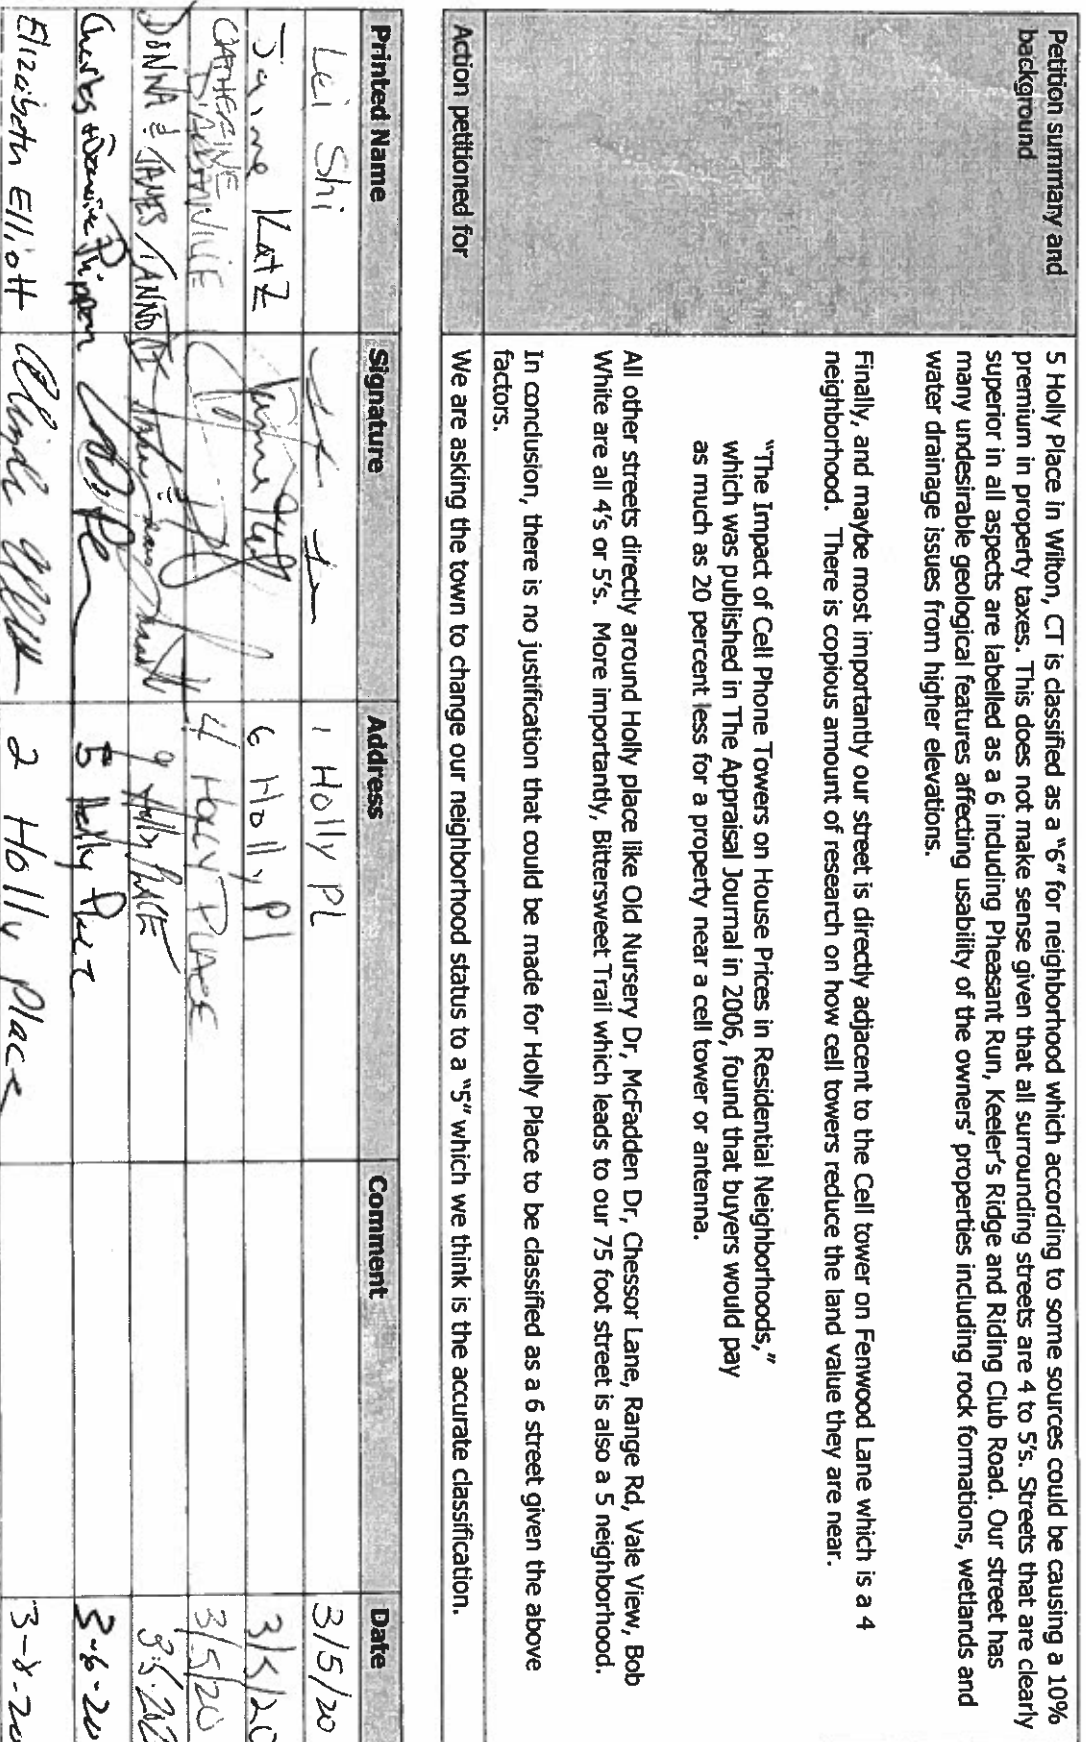 Petition summary and
background
5 Holly Place in Wilton, CT is classified as a "6" for neighborhood which according to some sources could be causing a 10%
premium in property taxes. This does not make sense given that all surrounding streets are 4 to 5's. Streets that are clearly
superior in all aspects are labelled as a 6 including Pheasant Run, Keeler's Ridge and Riding Club Road. Our street has
many undesirable geological features affecting usability of the owners' properties including rock formations, wetlands and
water drainage issues from higher elevations.
Finally, and maybe most importantly our street is directly adjacent to the Cell tower on Fenwood Lane which is a 4
neighborhood. There is copious amount of research on how cell towers reduce the land value they are near.
"The Impact of Cell Phone Towers on House Prices in Residential Neighborhoods,"
which was published in The Appraisal Journal in 2006, found that buyers would pay
as much as 20 percent less for a property near a cell tower or antenna.
All other streets directly around Holly place like Old Nursery Dr, McFadden Dr, Chessor Lane, Range Rd, Vale View, Bob
White are all 4's or 5's. More importantly, Bittersweet Trail which leads to our 75 foot street is also a 5 neighborhood.
In conclusion, there is no justification that could be made for Holly Place to be classified as a 6 street given the above
factors.
Action petitioned for
We are asking the town to change our neighborhood status to a "5" which we think is the accurate classification.
Printed Name Signature Address Comment Date
Lei Shi 1 Holly PL 3/5/20
Katz 6 Holly Pl 3/5/20
CATHERINE 4 HOLLY PLACE 3/5/20
DONNA & JAMES 9 Holly PLACE
Charles + 5 Holly 3-6-20
Elizabeth Elliott 2 Holly Place 3-8-20